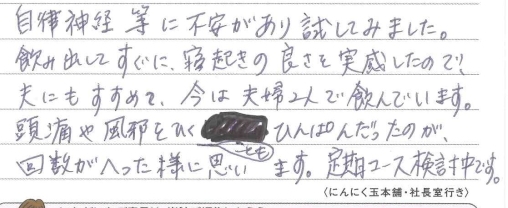 自律神経等に不安があり試してみました。
飲み出してすぐに、寝起きの良さを実感したので、
夫にもすすめて、今は夫婦2人で飲んでいます。
頭痛や風邪をひくことも ひんぱんだったのが、
回数がへった様に思います。定期コース検討中です。
(にんにく玉本舗・社長室行き)